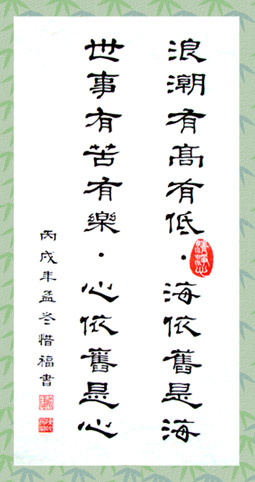 浪潮有高有低．海依舊是海
世事有苦有樂．心依舊是心
丙戌年孟冬惜福書